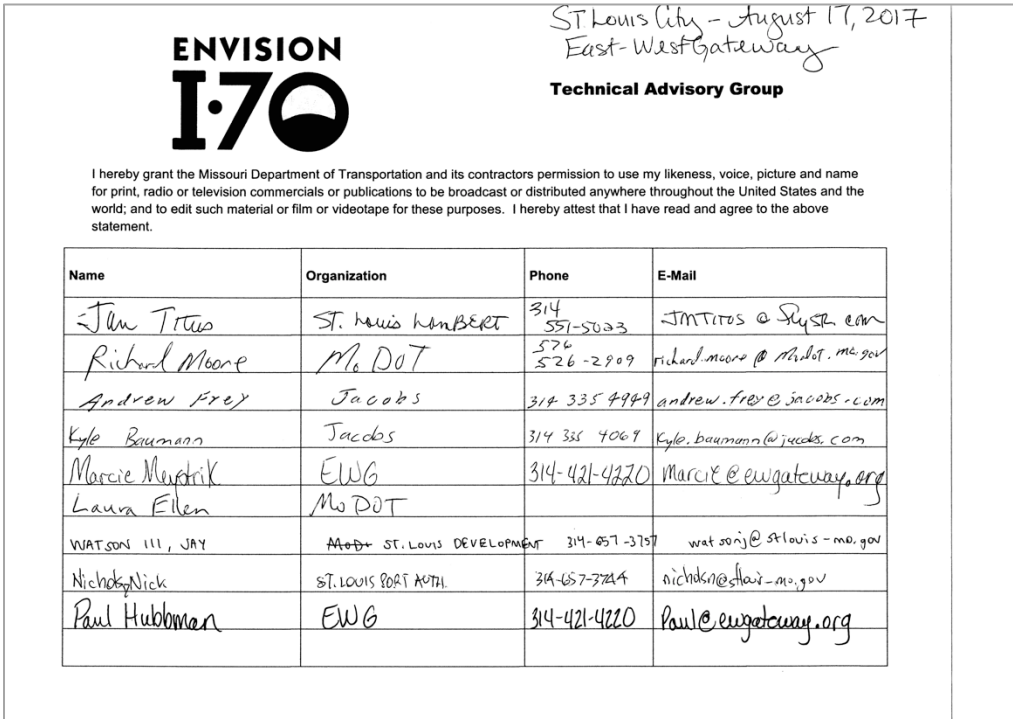 ST Louis City - August 17, 2017
East-West Gateway
ENVISION
I·70
Technical Advisory Group
I hereby grant the Missouri Department of Transportation and its contractors permission to use my likeness, voice, picture and name
for print, radio or television commercials or publications to be broadcast or distributed anywhere throughout the United States and the
world; and to edit such material or film or videotape for these purposes.  I hereby attest that I have read and agree to the above
statement.
Name Organization Phone E-Mail
Jan Titus ST. Louis LAMBERT 314 551-5023 JMTITUS @
Richard Moore MoDOT 526-2909 richard.moore @ Modot.mo.gov
Andrew Frey Jacobs 314 335 4949 andrew.frey@jacobs.com
Kyle Baumann Jacobs 314 335 4069 Kyle.baumann@jacobs.com
Marcie Meystrik EWG 314-421-4220 Marcie@ewgateway.org
Laura Ellen MoDOT
WATSON III, JAY MoD+ ST. LOUIS DEVELOPMENT 314-657-3757 watsonj@stlouis-mo.gov
Nick ST. LOUIS PORT AUTH. 314-657-3744
Paul Hubbman EWG 314-421-4220 Paul@ewgateway.org